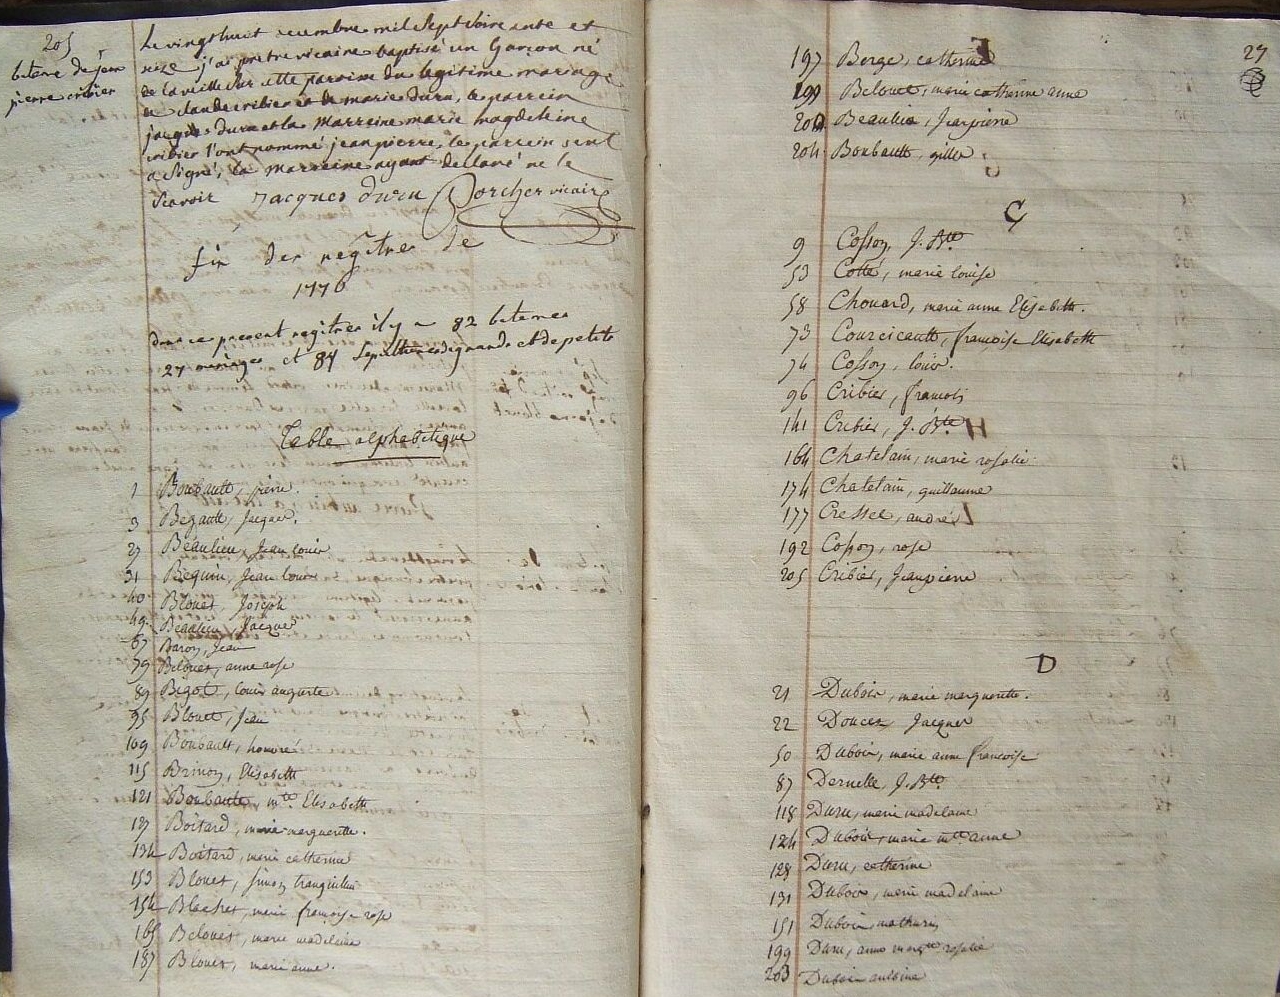 205
bateme de jean
pierre cribier
Le vingthuit decembre mil sept soixante et
seize j'ai pretre vicaire baptisé un Garçon né
de la veille sur cette paroisse du legitime mariage
de claude cribier et de marie duru, le parrein
jacques duru et la marreine marie magdeleine
cribier l'ont nommé jean pierre, le parrein seul
a signé, la marreine ayant declaré ne le
scavoir Jacques duru Porcher vicaire
fin des regîtres de
1776
dans ce present regitre il y a 82 batemes
27 mariages et 84 sepultures de grands et de petits
Table alphabetique
1 Boubault, pierre.
3 Begault, Jacques.
27 Beaulieu, Jean louis
31 Bequin, Jean louis
40 Blouet Joseph
49. Beaulieu, Jacques
67 Baron, Jean
79 Belouet, anne rose
89 Bigot, louis auguste
95 Blouet, Jean
109 Boubault, honoré
115 Brinon, Elisabeth
121 Boubault, mie Elisabeth
127 Boitard, marie marguerite.
134 Boitard, marie catherine
153 Blouet, simon tranquilin
154 Blachet, marie françoise rose
165 Belouet, marie madelaine
187 Blouet, marie anne.
27
197 Berge, catherine
199 Belouet, marie catherine anne
200 Beaulieu, Jeanpierre
204 Boubault, gilles
C
9 Cosson, J. Bte.
53 Cotté, marie louise
58 Chouard, marie anne Elisabeth.
73 Courcicault, françoise Elisabeth
74 Cosson, louis.
96 Cribier, francois
141 Cribier, J. Bte
164 Chatelain, marie rosalie
174 Chatelain, guillaume
177 Cressel, andré
192 Cosson, rose
205 Cribier, Jeanpierre
D
21 Dubois, marie marguerite.
22 Doucet, Jacques
50 Dubois, marie anne françoise
87 Dernelle, J. Bte.
118 Duru, marie madelaine
124 Dubois, marie mte anne
128 Duru, catherine
131 Dubois, marie madelaine
151 Dubois mathurin
199 Duru, anne margte rosalie
203 Dubois